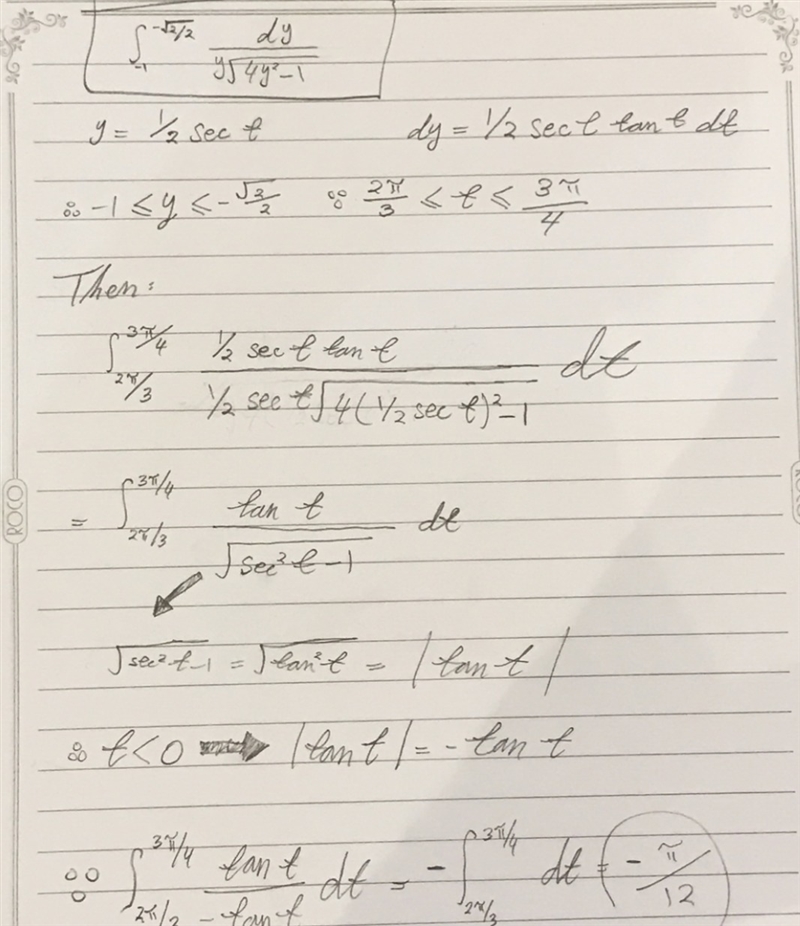 ∫₋₁^(-√2/2) dy / (y√(4y²-1))
y = 1/2 sec t dy = 1/2 sec t tan t dt
∴ -1 ≤ y ≤ -√2/2 ∵ 2π/3 ≤ t ≤ 3π/4
Then:
∫_(2π/3)^(3π/4) (1/2 sec t tan t) / (1/2 sec t √(4(1/2 sec t)²-1)) dt
= ∫_(2π/3)^(3π/4) tan t / √(sec² t - 1) dt
√(sec² t - 1) = √(tan² t) = |tan t|
∴ t < 0 ➡ |tan t| = - tan t
∵ ∫_(2π/3)^(3π/4) tan t / (- tan t) dt = - ∫_(2π/3)^(3π/4) dt = - π/12
ROCO